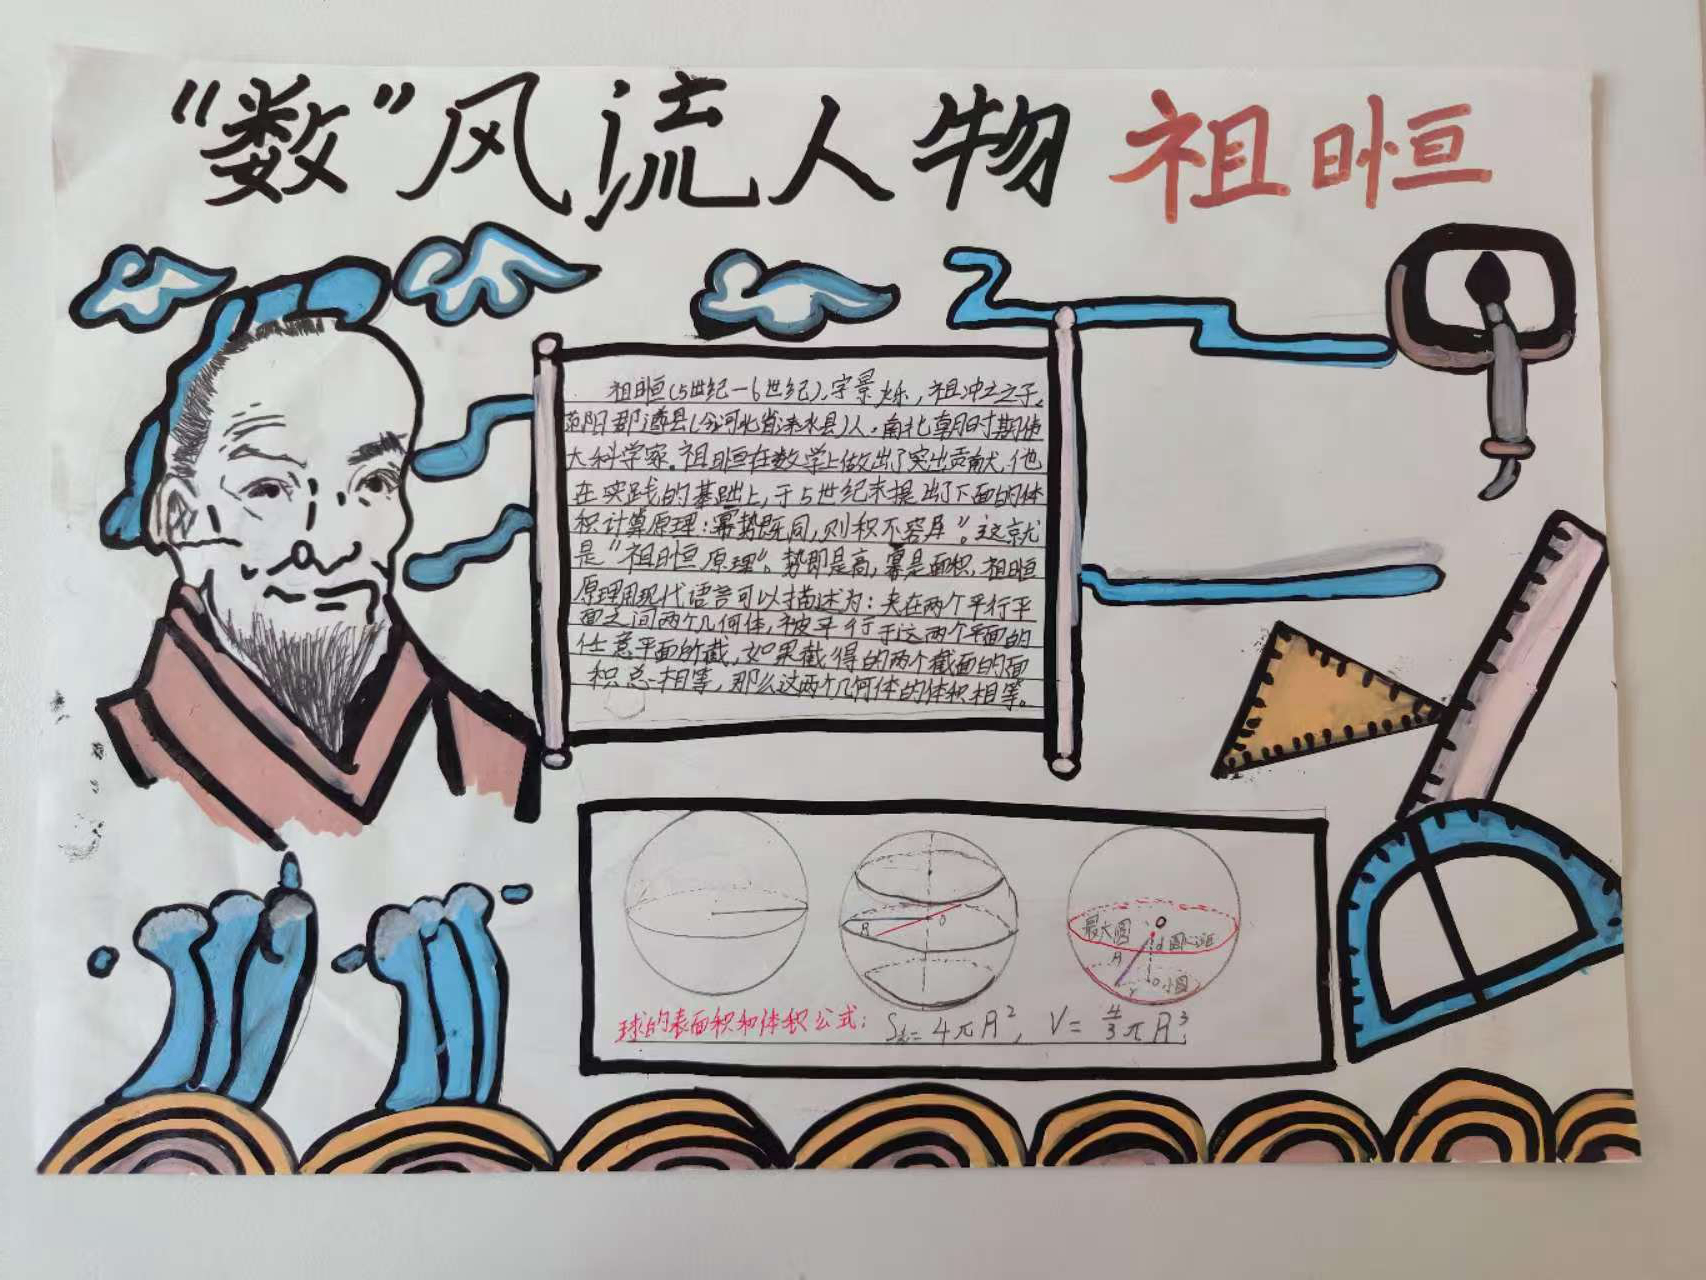 “数”风流人物 祖日恒
祖日恒(5世纪一6世纪),字景烁,祖冲之之子,
范阳郡遒县(今河北省涞水县)人。南北朝时期伟
大科学家。祖日恒在数学上做出了突出贡献,他
在实践的基础上,于5世纪末提出了下面的体
积计算原理:幂势既同,则积不容异”。这就
是“祖日恒原理”。势即是高,幂是面积,祖日恒
原理用现代语言可以描述为:夹在两个平行平
面之间两个几何体,被平行于这两个平面的
任意平面所截,如果截得的两个截面的面
积总相等,那么这两个几何体的体积相等。
R O
最大圆 O
d 圆心距
R
r O 小圆
球的表面积和体积公式: S球=4πR², V=4/3πR³;